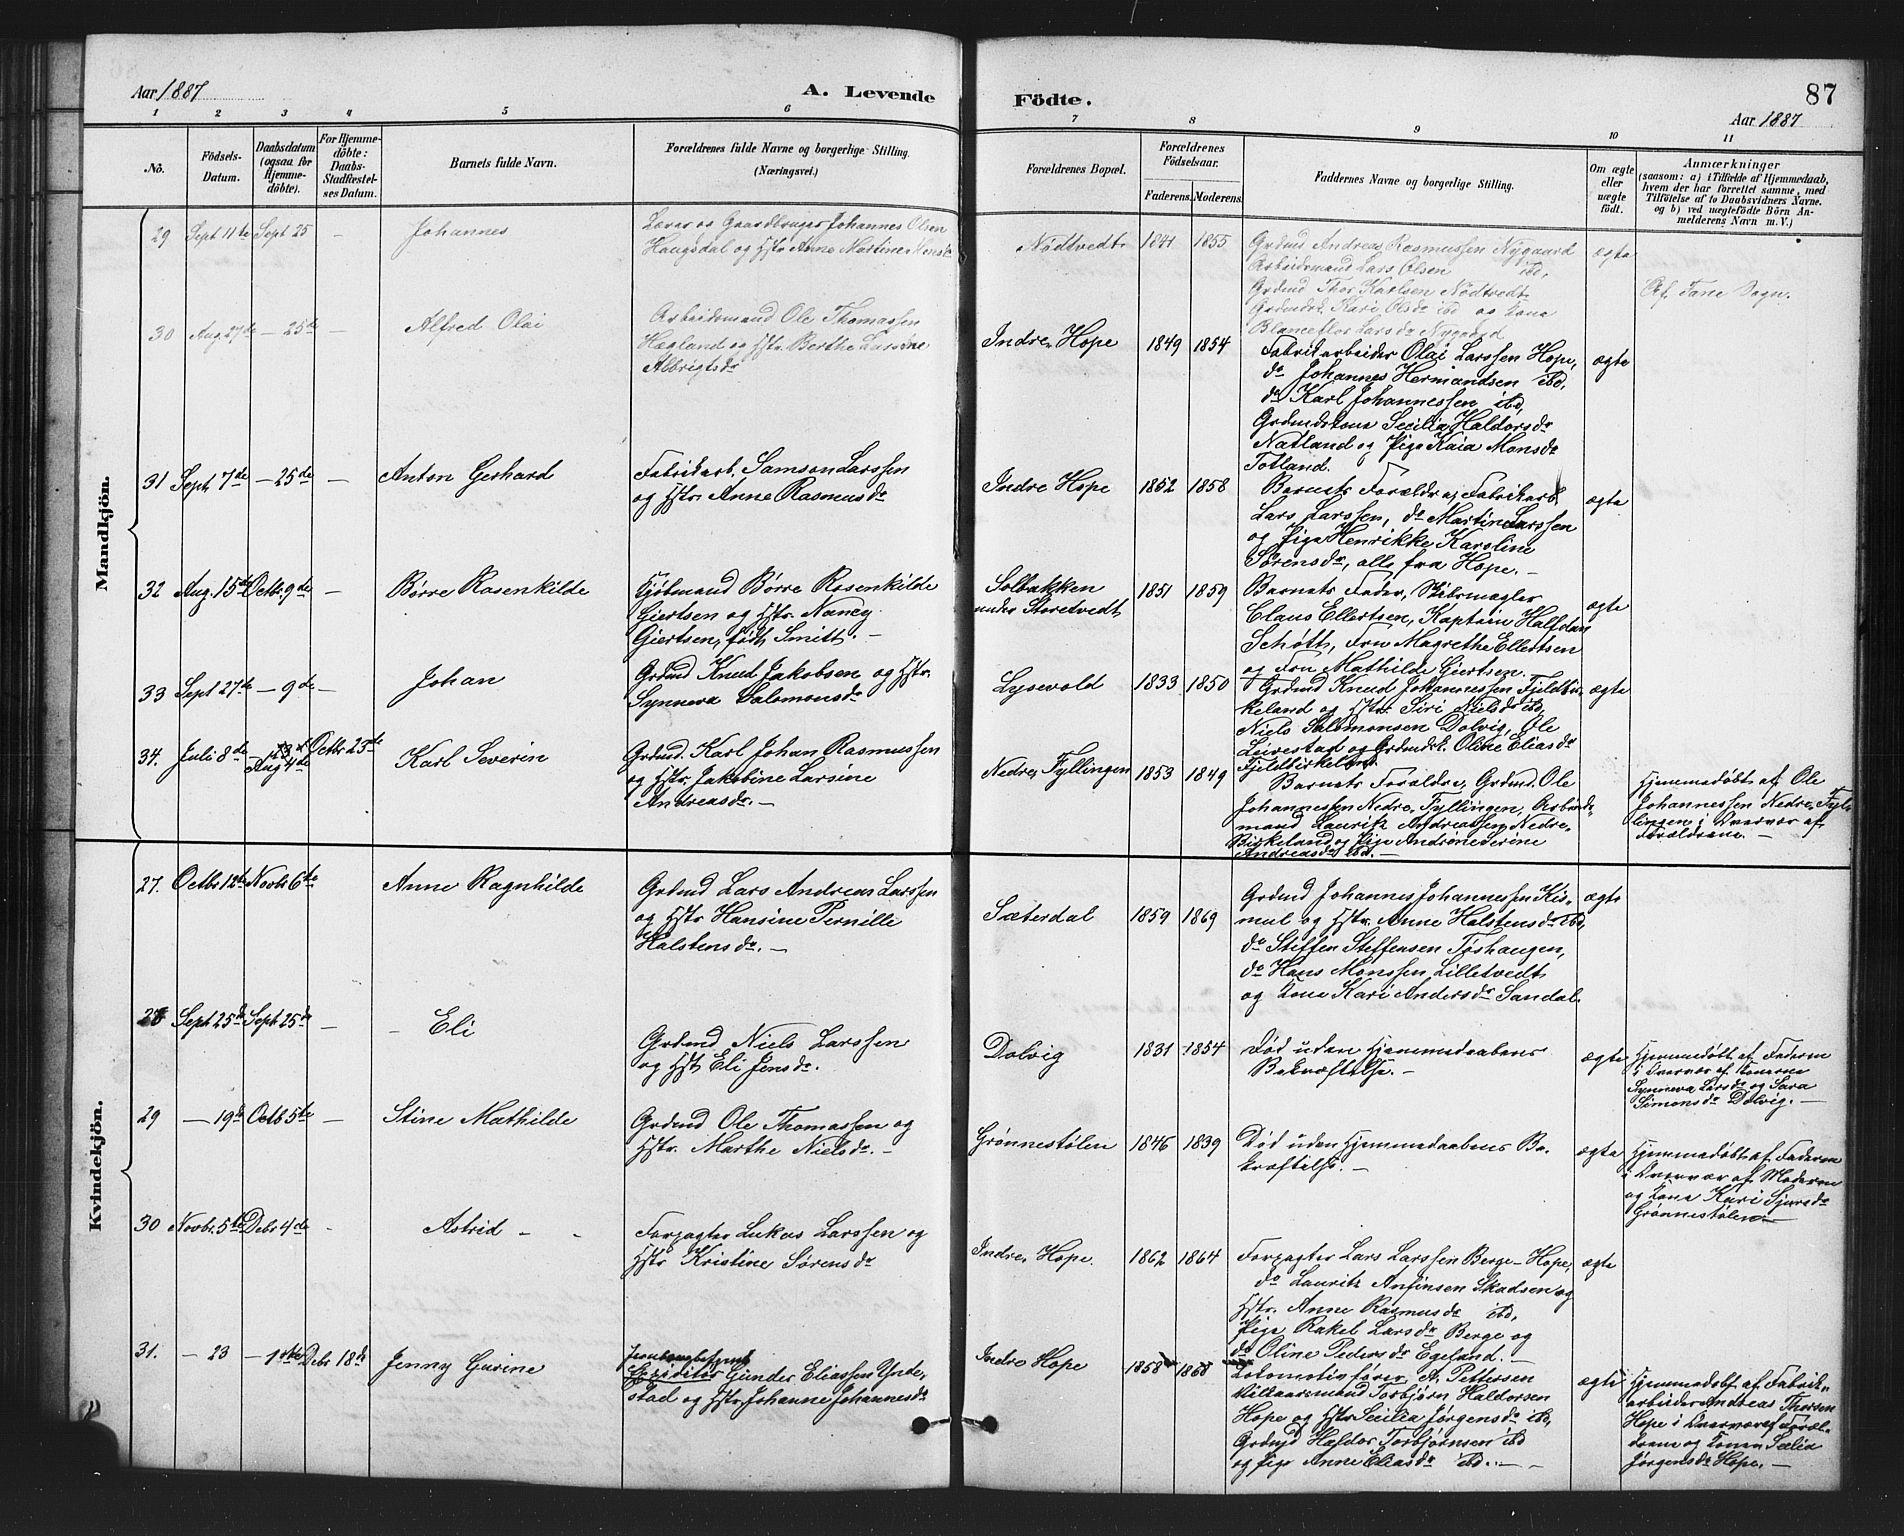 Aar 1887
A. Levende
Födte.
87
Aar 1887
1 2 3 4 5 6 7 8 9 10 11
No.
Födsels-
Datum.
Daabsdatum
(ogsaa for
Hjemme-
döbte).
For Hjemme-
döbte:
Daabs-
Stadfæstel-
ses Datum.
Barnets fulde Navn.
Forældrenes fulde Navne og borgerlige Stilling.
(Næringsvei.)
Forældrenes Bopæl.
Forældrenes
Födselsaar.
Faderens. Moderens.
Faddernes Navne og borgerlige Stilling.
Om ægte
eller
uægte
födt.
Anmærkninger
(saasom: a) i Tilfælde af Hjemmedaab,
hvem der har forrettet samme, med
Tilföielse af to Daabsvidners Navne.
og b) ved uægtefödte Börn An-
melderens Navn m. V.)
Mandkjön.
29 Sept 11te Sept 25 -
Johannes
Lærer og Gaardbruger Johannes Olsen
Haugsdal og Hstr. Anne Martine Monsdr
Nödtvedt
1841 1855
Grdmd Andreas Rasmussen Nygaard
Arbeidsmand Lars Olsen ibd,
Grdmd Thor Karlsen Nödtvedt
Grdmdst. Kari Olsdr ibd og Kone
Blanceflor Larsdr Nygaard
ægte
Af Fane Sogn.
30 Aug 27de - 25de -
Alfred Olai
Arbeidsmand Ole Thomassen
Hægland og Hstr. Berthe Larsine
Albrigtsdr
Indre Hope
1849 1854
Fabrikarbeider Olai Larssen Hope,
do Johannes Hermandsen ibd,
do Karl Johannessen ibd,
Grdmdskone Secilia Haldorsdr
Natland og Pige Kaia Monsdr
Totland.
ægte
31 Sept 7de - 25de -
Anton Gerhard
Fabrikarb. Samson Larssen
og Hstr. Anne Rasmusdr
Indre Hope
1862 1858
Barnets Forældre, Fabrikarb.
Lars Larssen, do Martin Larssen
og Pige Henrikke Karoline
Sørensdr, alle fra Hope. -
ægte
32 Aug. 15de Octbr. 9de -
Børre Rosenkilde
Kjøbmand Børre Rosenkilde
Giertsen og Hstr. Nancy
Giertsen, født Smitt. -
Solbakken
under Storetvedt
1851 1859
Barnets Fader, Skibsmægler
Claus Ellertsen, Kaptein Halfdan
Schøtt, Fru Magrethe Ellertsen
og Fru Mathilde Giertsen.
ægte
33 Sept 27de - 9de -
Johan
Grdmd Knud Jakobsen og Hstr.
Synneva Salomonsdr
Lysevold
1833 1850
Grdmd Knud Johannessen Fjeldbir-
keland og Hstr. Siri Nielsdr ibd,
Niels Salomonsen Dolvig, Ole
Leirestad og Grdmdsk. Oline Eliasdr
Fjeldbirkeland
ægte
34. Juli 8de Aug 4de Octbr 23de
Karl Severin
Grdmd. Karl Johan Rasmussen
og Hstr. Jakobine Larsine
Andreasdr. -
Nedre Fyllingen
1853 1849
Barnets Forældre, Grdmd. Ole
Johannessen Nedre Fyllingen, Arbeids-
mand Laurits Andreassen Nedre
Birkeland og Pige
Andreasdr ibd. -
Hjemmedøbt af Ole
Johannessen Nedre Fyl-
lingen i Overvær af
Forældrene. -
Kvindekjön.
27. Octbr 12te Novbr 6te
Anne Ragnhilde
Grdmd Lars Andreas Larssen
og Hstr Hansine Pernille
Halstensdr. -
Sæterdal
1859 1869
Grdmd Johannes Johannessen Kis-
mul og Hstr. Anne Halstensdr ibd,
do Steffen Steffensen Tøshaugen,
do Hans Monssen Lilletvedt
og Kone Kari Andersdr Sandal.
ægte
28 Sept 25de Sept 25de -
- Eli
Grdmd Niels Larssen
og Hst Eli Jensdr.
Dolvig
1831 1854
Død uden Hjemmedaabens
Bekræftelse. -
ægte
Hjemmedøbt af Faderen
i Overvær af Konerne
Synneva Larsdr og Sara
Simonsdr Dolvig. -
29 - 19de Octb 5te -
Stine Mathilde
Grdmd Ole Thomassen og
Hstr. Marthe Nielsdr. -
Grønnestølen
1846 1839
Død uden Hjemmedaabens Be-
kræftelse. -
ægte
Hjemmedøbt af Faderen
i Overvær af Moderen
og Kone Kari Sjursdr
Grønnestølen -
30 Novbr. 5te Debr 4de -
Astrid - -
Forpagter Lukas Larssen og
Hstr Kristine Sørensdr
Indre Hope.
1862 1864
Forpagter Lars Larssen Berge-Hope,
do Laurits Anfinsen Skadsen og
Hstr. Anne Rasmusdr ibd,
Pige Rakel Larsdr Berge og
do Oline Pedersdr Egeland. -
ægte
31. - 23 - 1ste Debr 18de
Jenny Gurine
Expeditør Gunder Eliassen Ynde-
stad og Hstr Johanne Johannesdr
Indre Hope
1858 1868
Lokomotivfører A. Pettersen
Vilkaarsmand Torbjørn Haldorsen
Hope og Hstr Secilia Jørgensdr ibd,
Grdmd Haldor Torbjørnsen ibd
og Pige Anne Eliasdr ibd. - -
ægte
Hjemmedøbt af Fabrik-
arbeider Andreas Thorsen
Hope i Overvær af Foræl-
drene og Konen Secilia
Jørgensdr Hope. -